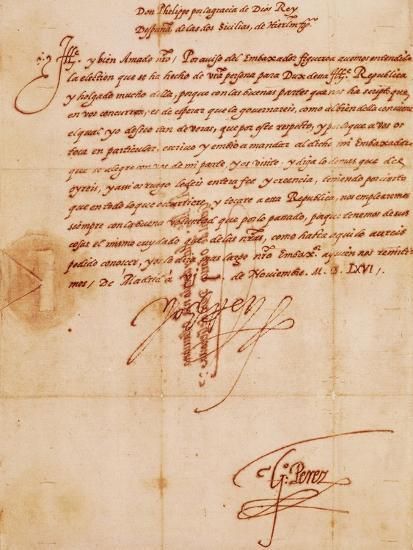 Don Phelippe por la gracia de Dios Rey
Despaña, de las dos Sicilias, de Hierlm. &c.
Ill.e y bien Amado nro. Por aviso del Embaxador figueroa avemos entendido
la election que se ha hecho de vra persona para Dux de essa Ill.e Republica
y holgado mucho della, porque con las buenas partes que nos ha scripto que
en vos concurren, es de esperar que la governareis, como al bien della conviene
el qual yo desseo tan de veras, que por este respecto, y por lo que a vos os
toca en particular, escrivo y embio a mandar al dicho mi Embaxador
que se alegre con vos de mi parte, y os visite, y diga lo demas que del
oyreis, y assi os ruego le deis entera fee y creencia, teniendo por cierto
que en todo lo que os tocare a essa Republica, nos emplearemos
siempre con la buena voluntad que por lo passado, porque tenemos de sus
cosas el mismo cuydado que de las nras, como hasta aqui lo aureis
podido conoscer, y os lo dira mas largo nro Embax.r a quien nos remiti-
mos, De Madrid à de Noviembre. M. D. LXVI.
Yo el Rey
G.o Perez